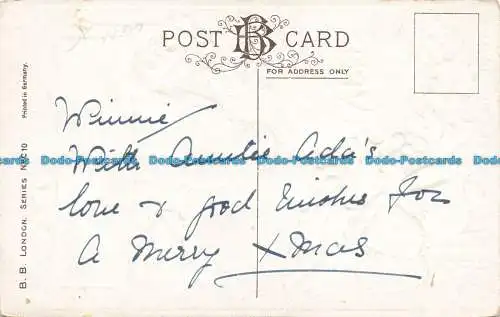 POST BB CARD
FOR ADDRESS ONLY
Winnie
With Auntie Ada's
love & good wishes for
A Merry Xmas
Dodo-Postcards Dodo-Postcards Dodo-Postcards Dodo-Postcards Dodo-Postcards
B. B. LONDON. SERIES No. C 10
Printed in Germany.